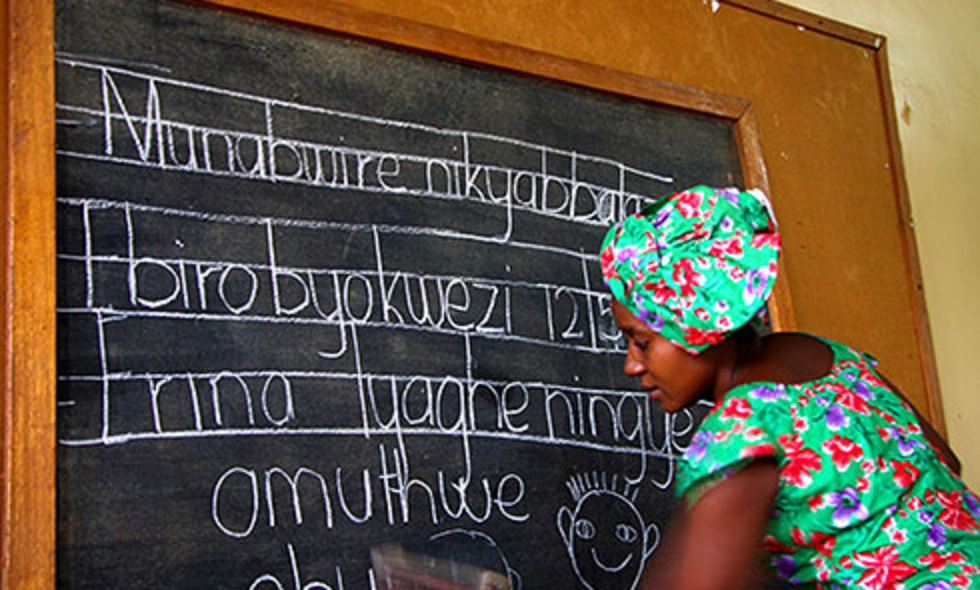 Munabwire nikyabbala
Ebiro byokwezi 12 15
Erina lyaghe ningye
omuthwe